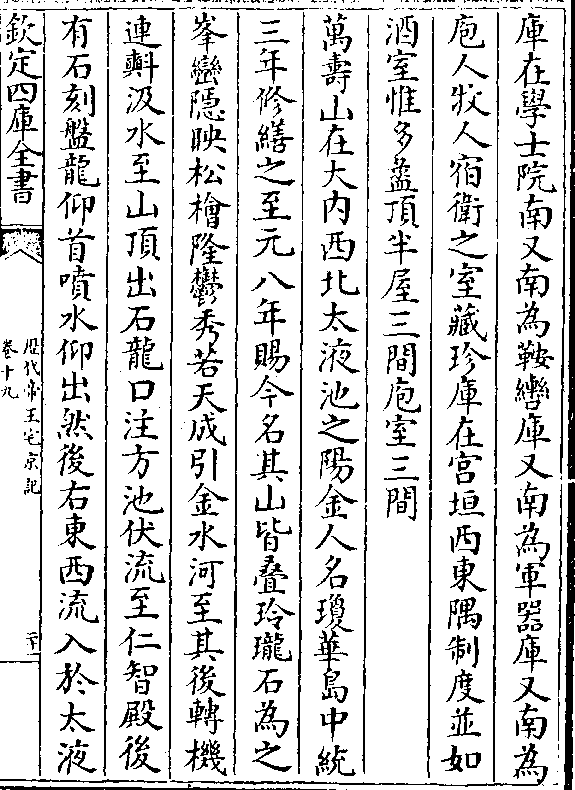 庫在學士院南又南為鞍轡庫又南為軍器庫又南為
庖人牧人宿衛之室藏珍庫在宮垣西東隅制度並如
酒室惟多盝頂半屋三間庖室三間
萬壽山在大内西北太液池之陽金人名瓊華島中統
三年修繕之至元八年賜今名其山皆疊玲瓏石為之
峯巒隠映松檜隆鬱秀若天成引金水河至其後轉機
運㪺汲水至山頂出石龍口注方池伏流至仁智殿後
有石刻盤龍仰首噴水仰出然後右東西流入於太液
欽定四庫全書
歴代帝王宅京記
卷十九
二十